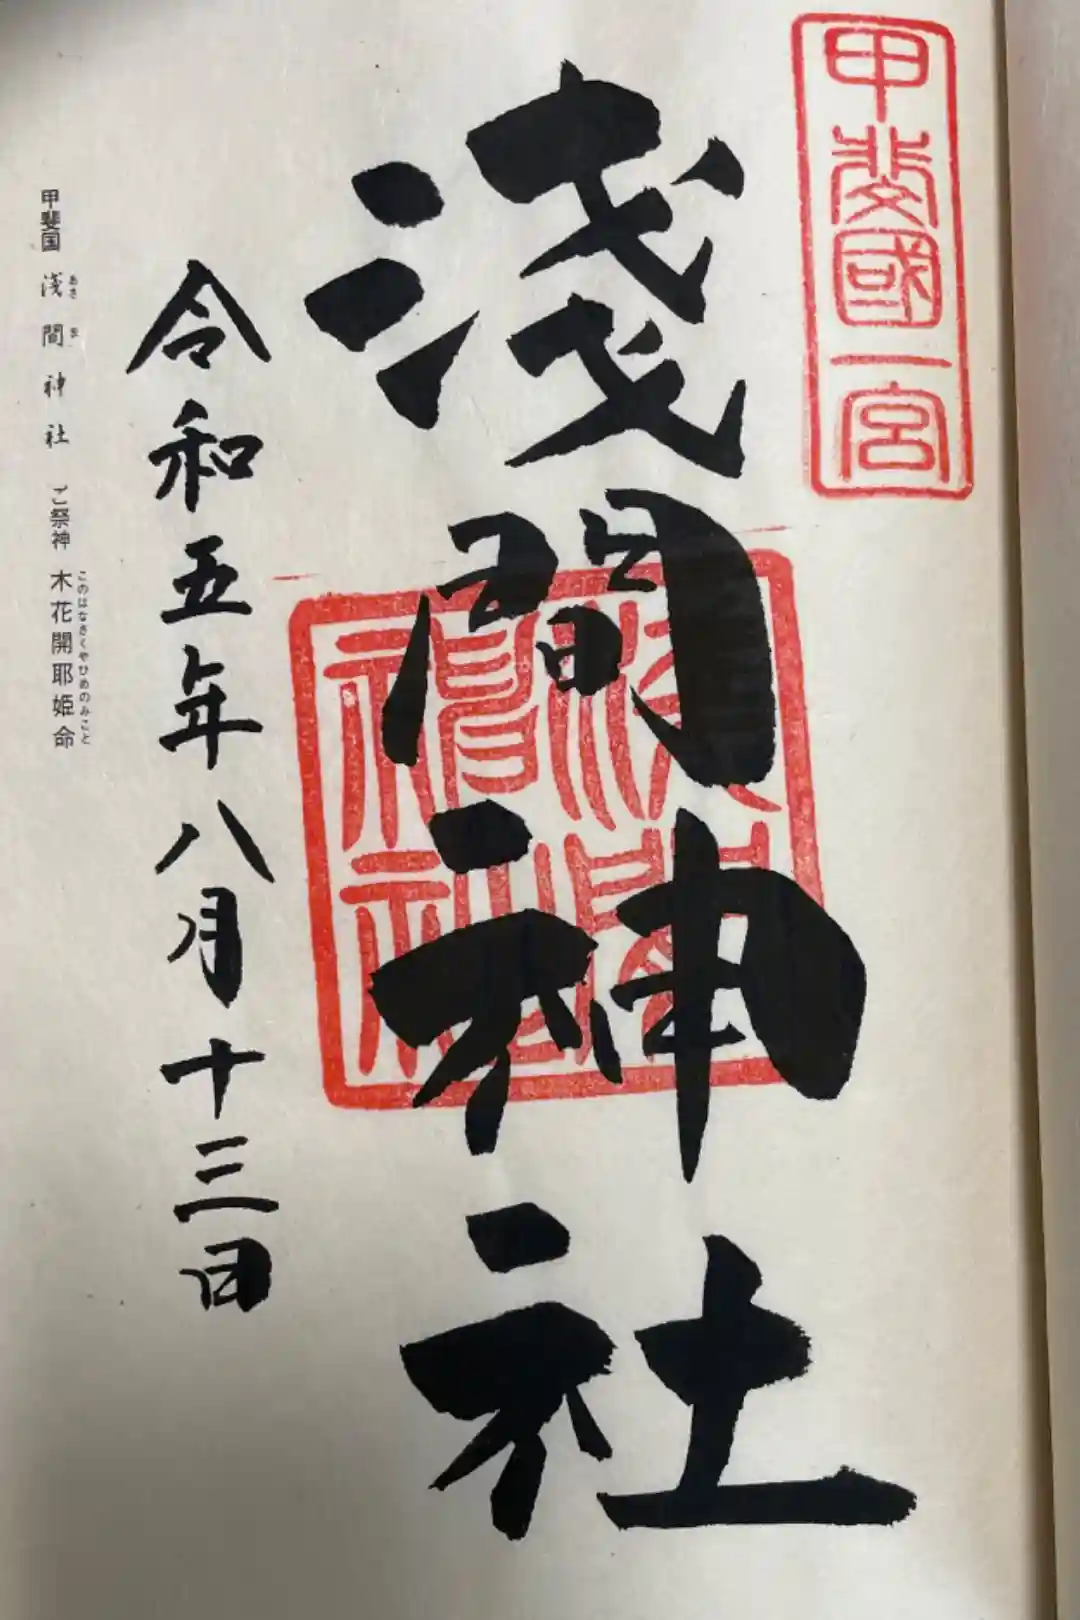 甲斐國一宮
淺間神社
淺間神社印
令和五年八月十三日
甲斐国 淺間神社 ご祭神 木花開耶姫命
あさま
このはなさくやひめのみこと